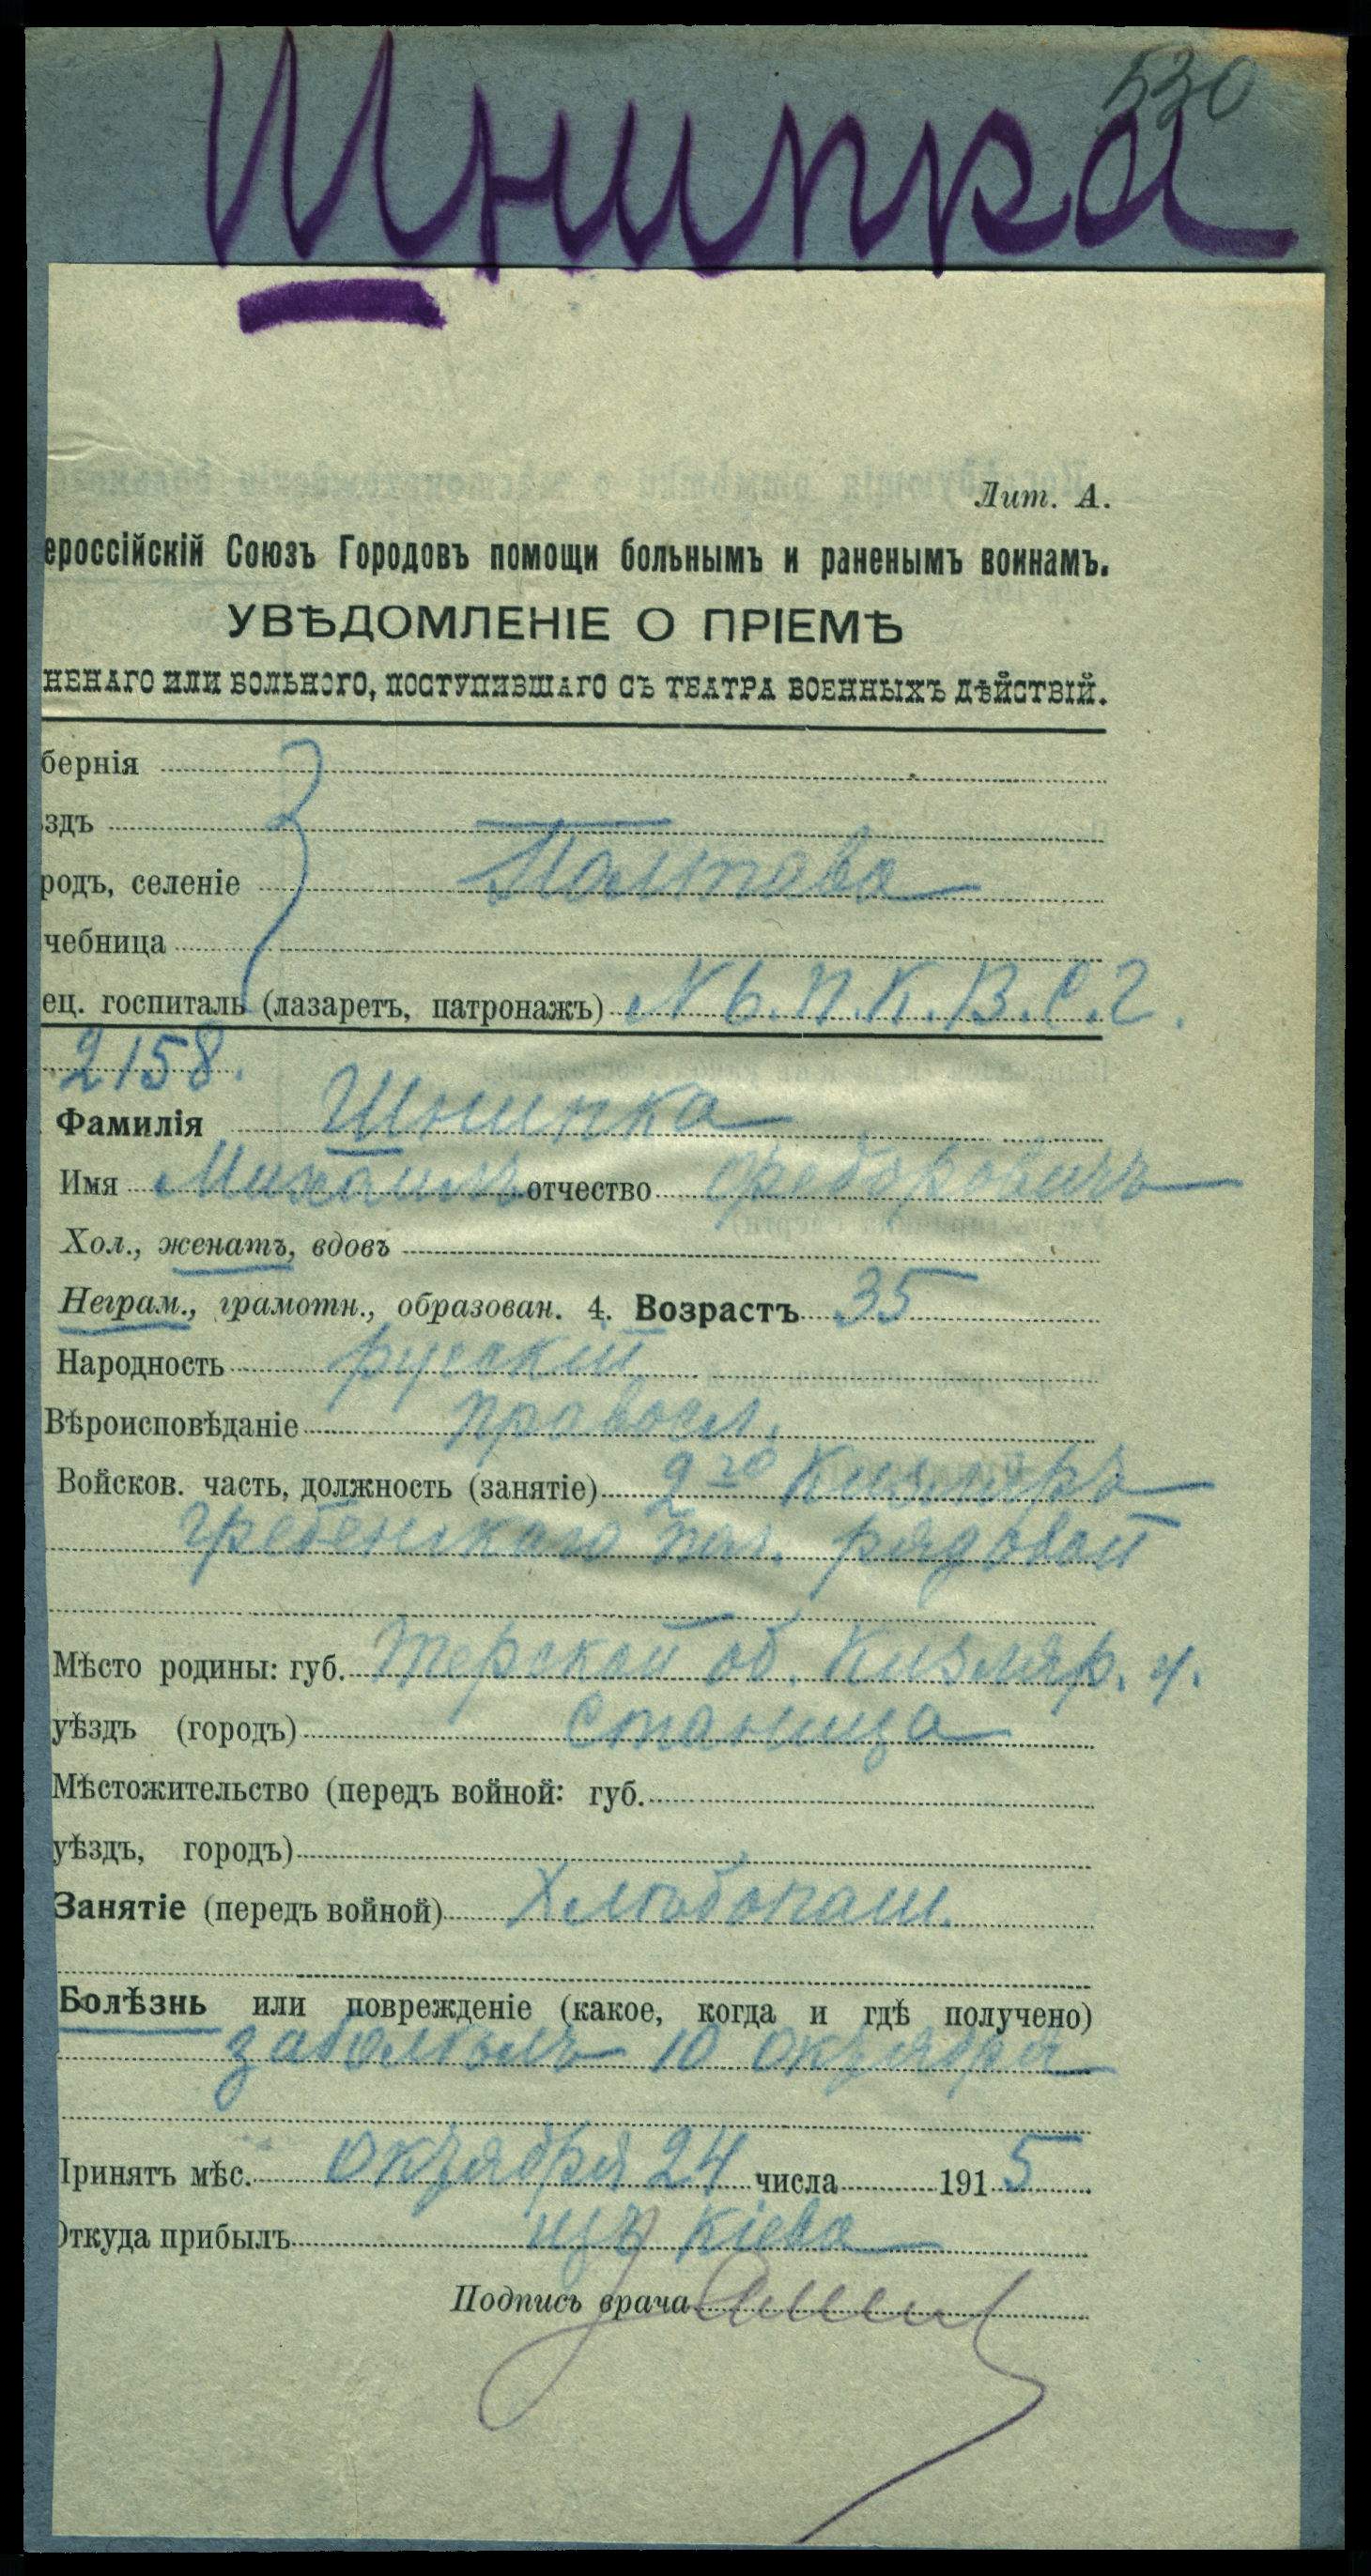 530
Шнипка
Лит. А.
ероссійскій Союзъ Городовъ помощи больнымъ и раненымъ воинамъ.
УВѢДОМЛЕНІЕ О ПРІЕМѢ
НЕНАГО ИЛИ БОЛЬНОГО, ПОСТУПИВШАГО СЪ ТЕАТРА ВОЕННЫХЪ ДѢЙСТВІЙ.
бернія
здъ
родъ, селеніе Полтава
чебница
ец. госпиталь (лазаретъ, патронажъ) П.К.В.С.Г.
2158.
Фамилія Шнипка
Имя Михаилъ отчество Федоровичъ
Хол., женатъ, вдовъ
Неграм., грамотн., образован. 4. Возрастъ 35
Народность русскій
Вѣроисповѣданіе правосл.
Войсков. часть, должность (занятіе) 2го Кизляръ
Гребенскаго пол. рядовой
Мѣсто родины: губ. Терской об. Кизляр. у.
уѣздъ (городъ) станица
Мѣстожительство (передъ войной: губ.
уѣздъ, городъ)
Занятіе (передъ войной) Хлѣбопаш.
Болѣзнь или поврежденіе (какое, когда и гдѣ получено)
заболѣлъ 10 октября
Принятъ мѣс. октября 24 числа 1915
Откуда прибылъ изъ Кіева
Подпись врача